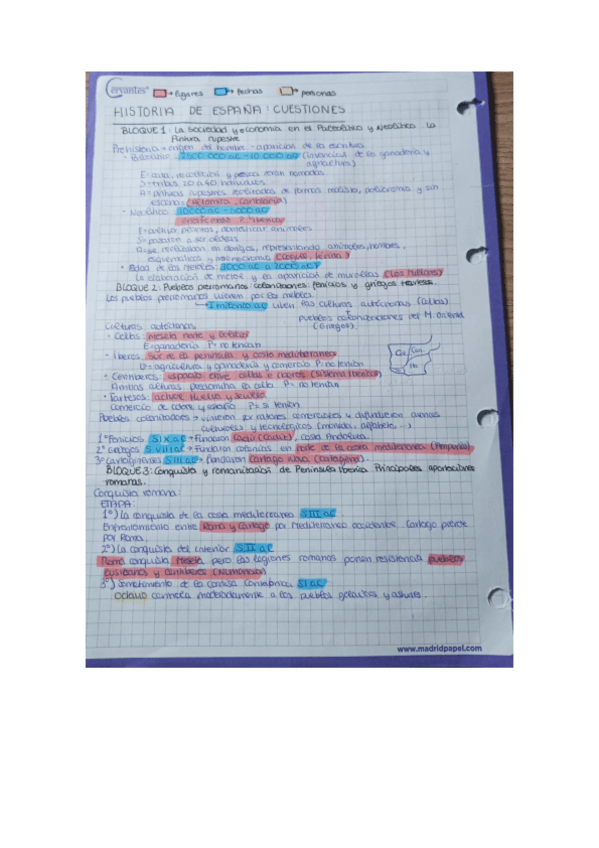 Cervantes → lugares → fechas → personas
HISTORIA DE ESPAÑA: CUESTIONES
BLOQUE 1: La Sociedad y economía en el Paleolítico y Neolítico. La
Pintura rupestre
Prehistoria → origen del hombre - aparición de la escritura
(invención de la ganadería y
agricultura)
E= caza, recolección y pesca eran nómadas
S= tribus, 20 a 40 individuos
A= pinturas rupestres realizadas de forma realista, policromas y sin
escena (Altamira, Cantabria)
· Neolítico:
E= cultivar plantas, domesticar animales
S= pasaron a ser aldeas
representando animales, hombres,
esquemática y monocroma
· Edad de los Metales 3000 aC a 2000 aC
La elaboración de metal y la aparición de murallas (Los Millares)
BLOQUE 2: Pueblos prerromanos: colonizadores: fenicios y griegos
Los pueblos prerromanos vivieron por los metales.
→ I milenio aC viven las culturas autóctonas
pueblos colonizadores del M. Oriental
(Griegos).
Culturas autóctonas
· Celtas: Meseta norte y
E= ganadería P= no tenían
· Íberos: Sur de la península y costa mediterráneo
agricultura y ganadería y comercio P= no tenían
· Celtíberos: espacio entre celtas e íberos (Sistema Ibérico)
Ambas culturas predomina la celta. P= no tenían
· Tartesos: actual Huelva y Sevilla
Comercio de cobre y estaño P= sí tenían
Pueblos colonizadores → vinieron por razones comerciales y difundieron avances
culturales y tecnológicos (moneda, alfabeto, ...)
1º Fenicios S IX aC → Fundaron Gadir (Cádiz), costa Andaluza.
2º Griegos S VIII aC → Fundaron colonias en norte de la costa mediterránea (Ampurias)
3º Cartagineses S III aC → fundaron Cartago Nova (Cartagena).
BLOQUE 3: Conquista y romanización de Península Ibérica. Principales aportaciones
romanas.
Conquista romana:
ETAPA:
1º) La conquista de la costa mediterránea S III aC
Enfrentamiento entre Roma y Cartago por Mediterráneo occidental. Cartago pierde
por Roma.
2º) La conquista del interior S II aC
Roma conquista Meseta pero las legiones romanas ponen resistencia pueblos
lusitanos y celtíberos (Numancia)
3º) Sometimiento de la cornisa Cantábrica S I aC
Octavio sometía moderadamente a los pueblos galaicos y astures.
www.madridpapel.com